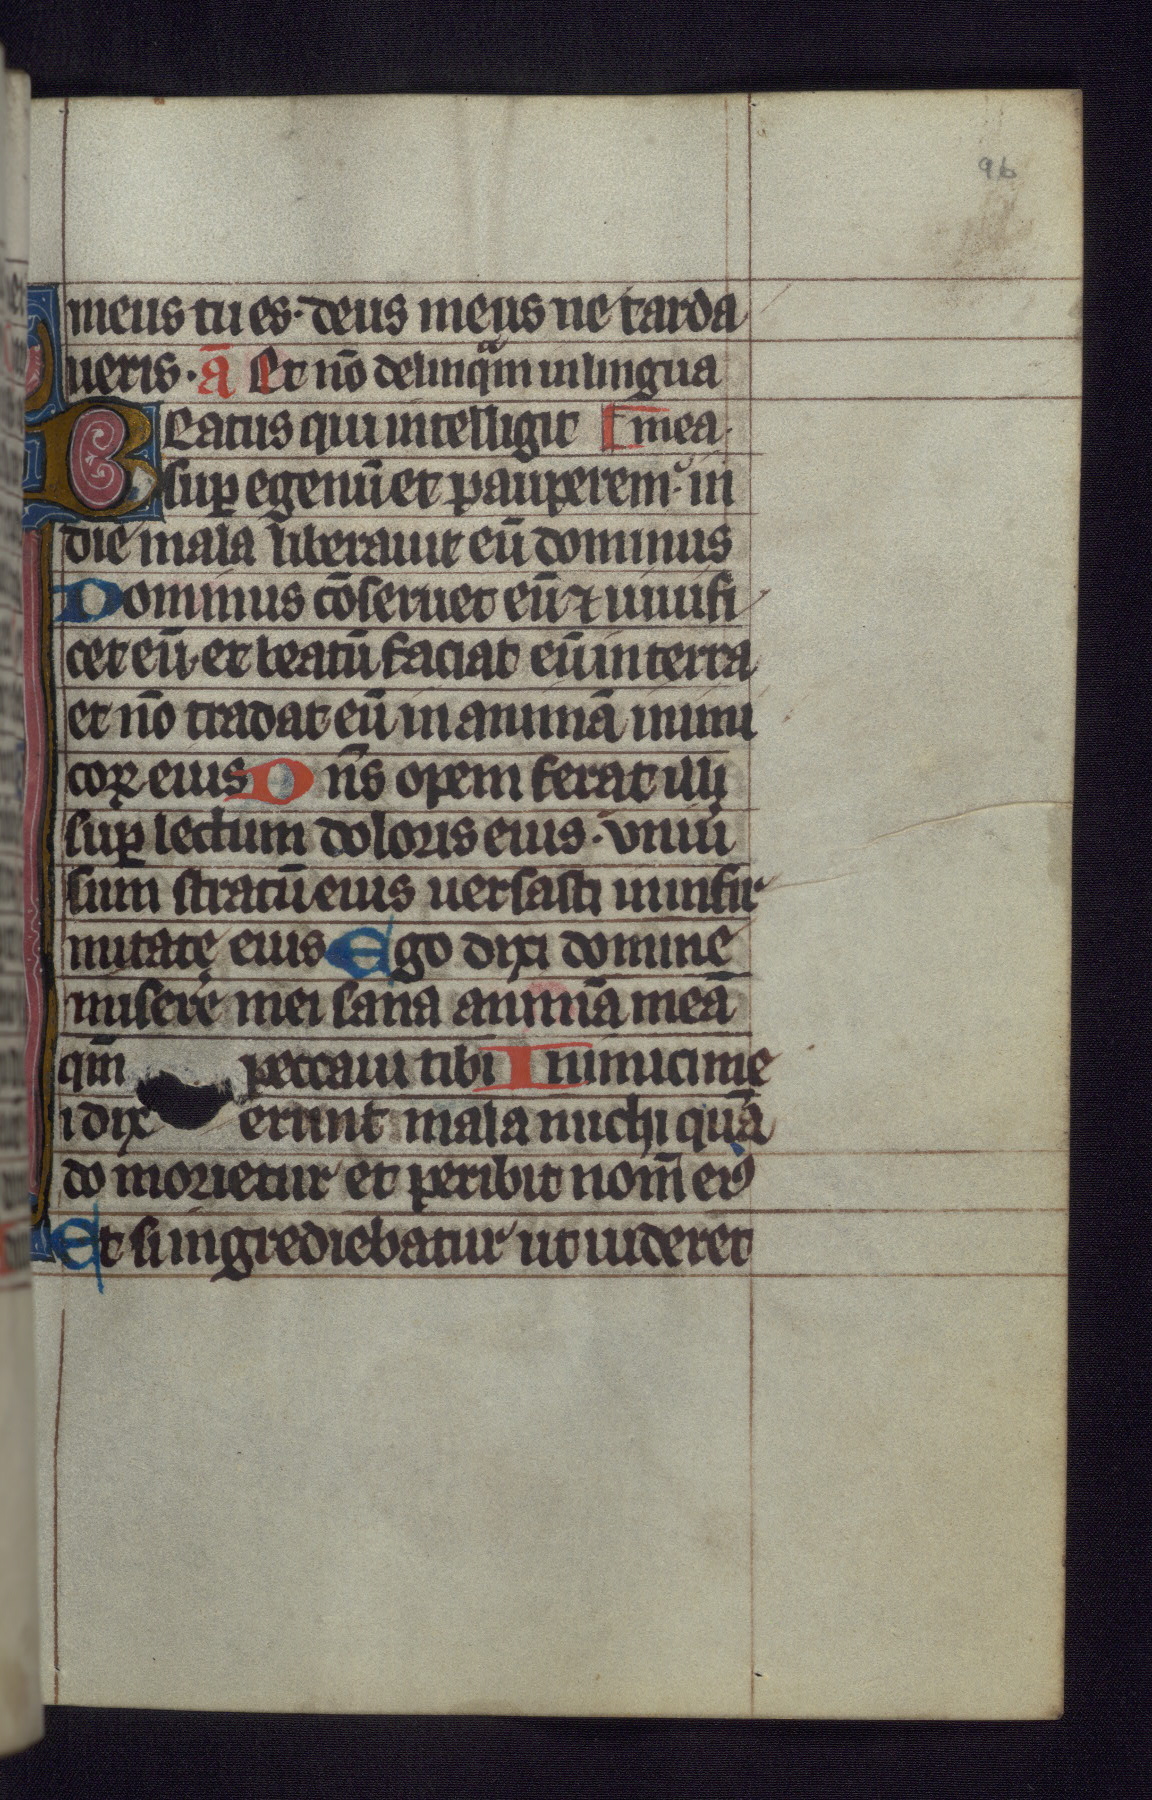 96
meus tu es· deus meus ne tarda
ueris· ā Et nō delinqam in lingua
Beatus qui intelligit mea·
sup egenū et pauperem· in
die mala liberauit eū dominus
Dominus cōseruet eū ⁊ uiuifi
cet eū· et beatū faciat eū in terra
et nō tradat eū in animā inimi
coꝝ eius Dn̄s opem ferat illi
sup lectum doloris eius· vniū
sum stratū eius uersasti in infir
mitate eius Ego dixi domine
misere mei sana animā meā
qm̄ peccaui tibi Inimici me
i dixerunt mala michi quā
do morietur et peribit nom̄ eiꝰ
Et si ingrediebatur ut uideret